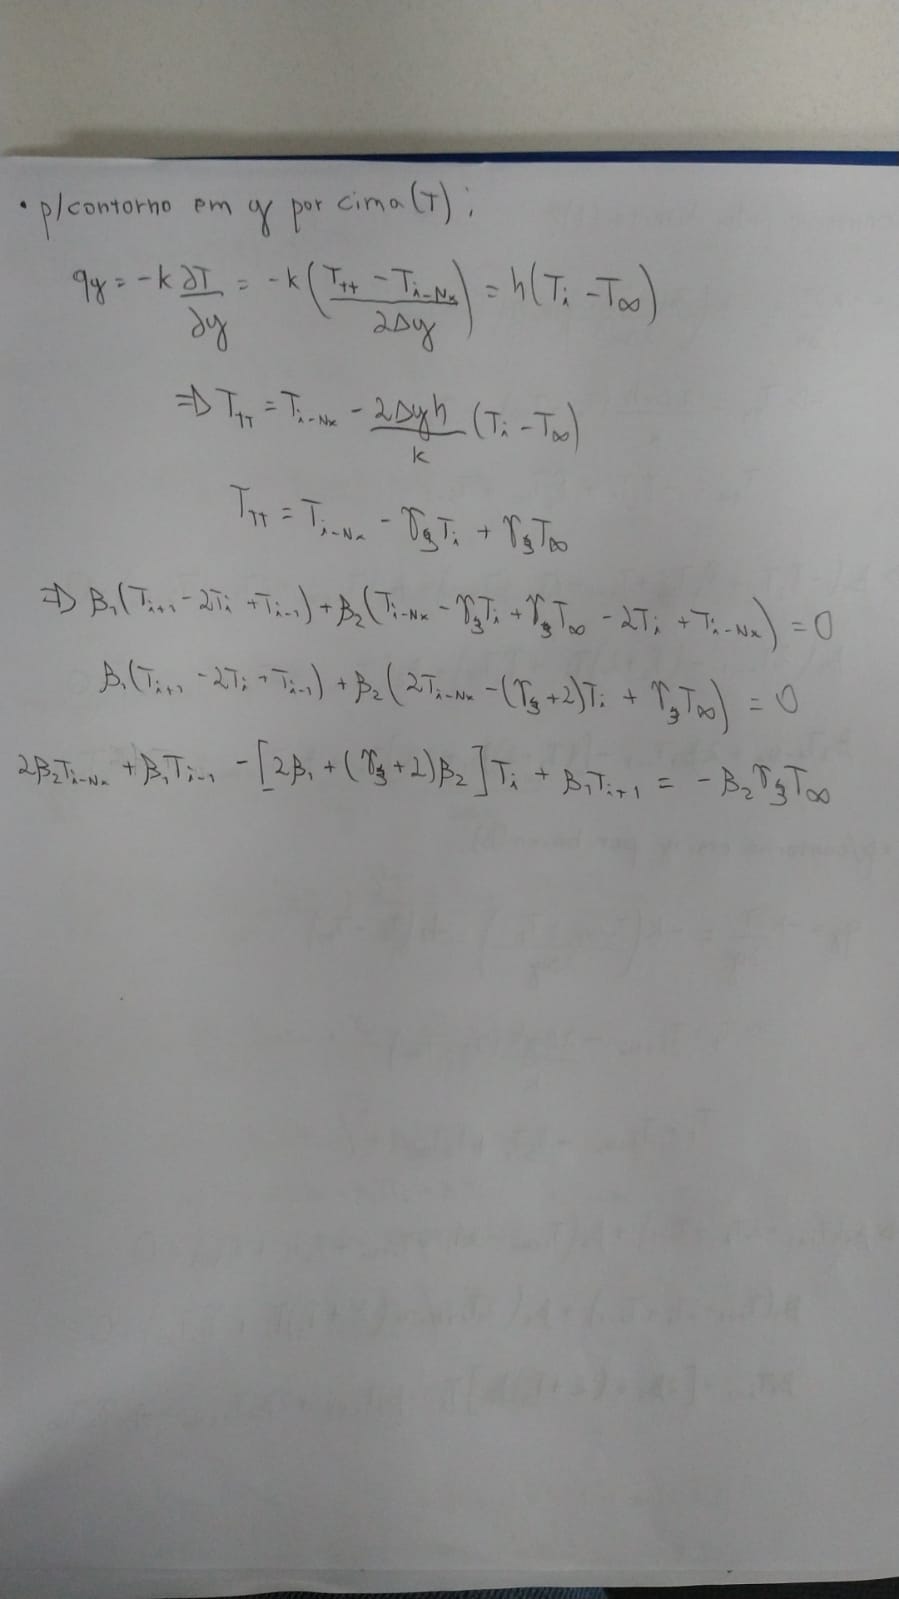 • p/contorno em y por cima (T):
qy = -k ∂T/∂y = -k((T_TT - T_i-Nx)/2Δy) = h(T_i - T_∞)
⇒ T_TT = T_i-Nx - 2Δyh/k (T_i - T_∞)
T_TT = T_i-Nx - γ_3T_i + γ_3T_∞
⇒ β_1(T_i+1 - 2T_i + T_i-1) + β_2(T_i-Nx - γ_3T_i + γ_3T_∞ - 2T_i + T_i-Nx) = 0
β_1(T_i+1 - 2T_i + T_i-1) + β_2(2T_i-Nx - (γ_3+2)T_i + γ_3T_∞) = 0
2β_2T_i-Nx + β_1T_i-1 - [2β_1 + (γ_3+2)β_2]T_i + β_1T_i+1 = -β_2γ_3T_∞